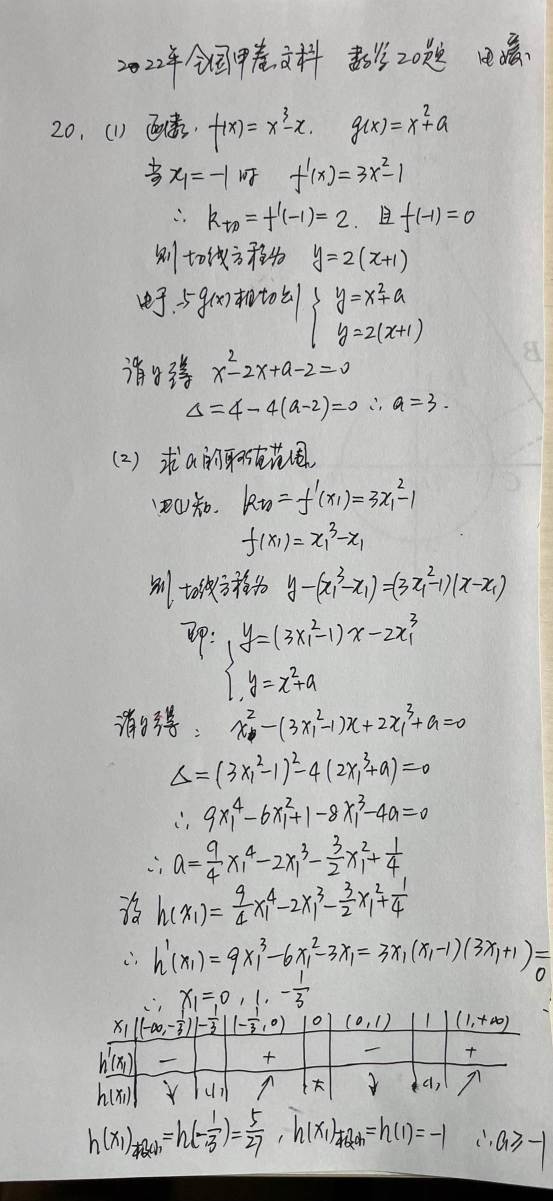 2022年全国甲卷文科 数学20题
20. (1) 函数 f(x)=x³-x. g(x)=x²+a
当x₁=-1时 f'(x)=3x²-1
∴ k切=f'(-1)=2. 且f(-1)=0
则切线方程为 y=2(x+1)
由于与g(x)相切则 { y=x²+a
y=2(x+1)
消y得 x²-2x+a-2=0
Δ=4-4(a-2)=0 ∴ a=3.
(2) 求a的取值范围
由(1)知. k切=f'(x₁)=3x₁²-1
f(x₁)=x₁³-x₁
则切线方程为 y-(x₁³-x₁)=(3x₁²-1)(x-x₁)
即: { y=(3x₁²-1)x-2x₁³
y=x²+a
消y得: x²-(3x₁²-1)x+2x₁³+a=0
Δ=(3x₁²-1)²-4(2x₁³+a)=0
∴ 9x₁⁴-6x₁²+1-8x₁³-4a=0
∴ a=9/4x₁⁴-2x₁³-3/2x₁²+1/4
设 h(x₁)=9/4x₁⁴-2x₁³-3/2x₁²+1/4
∴ h'(x₁)=9x₁³-6x₁²-3x₁=3x₁(x₁-1)(3x₁+1)=0
∴ x₁=0, 1, -1/3
x₁ (-∞,-1/3) -1/3 (-1/3,0) 0 (0,1) 1 (1,+∞)
h'(x₁) - + - +
h(x₁) ↘ 小 ↗ 大 ↘ 小 ↗
h(x₁)极小=h(-1/3)=5/27, h(x₁)极小=h(1)=-1 ∴a≥-1
B
C